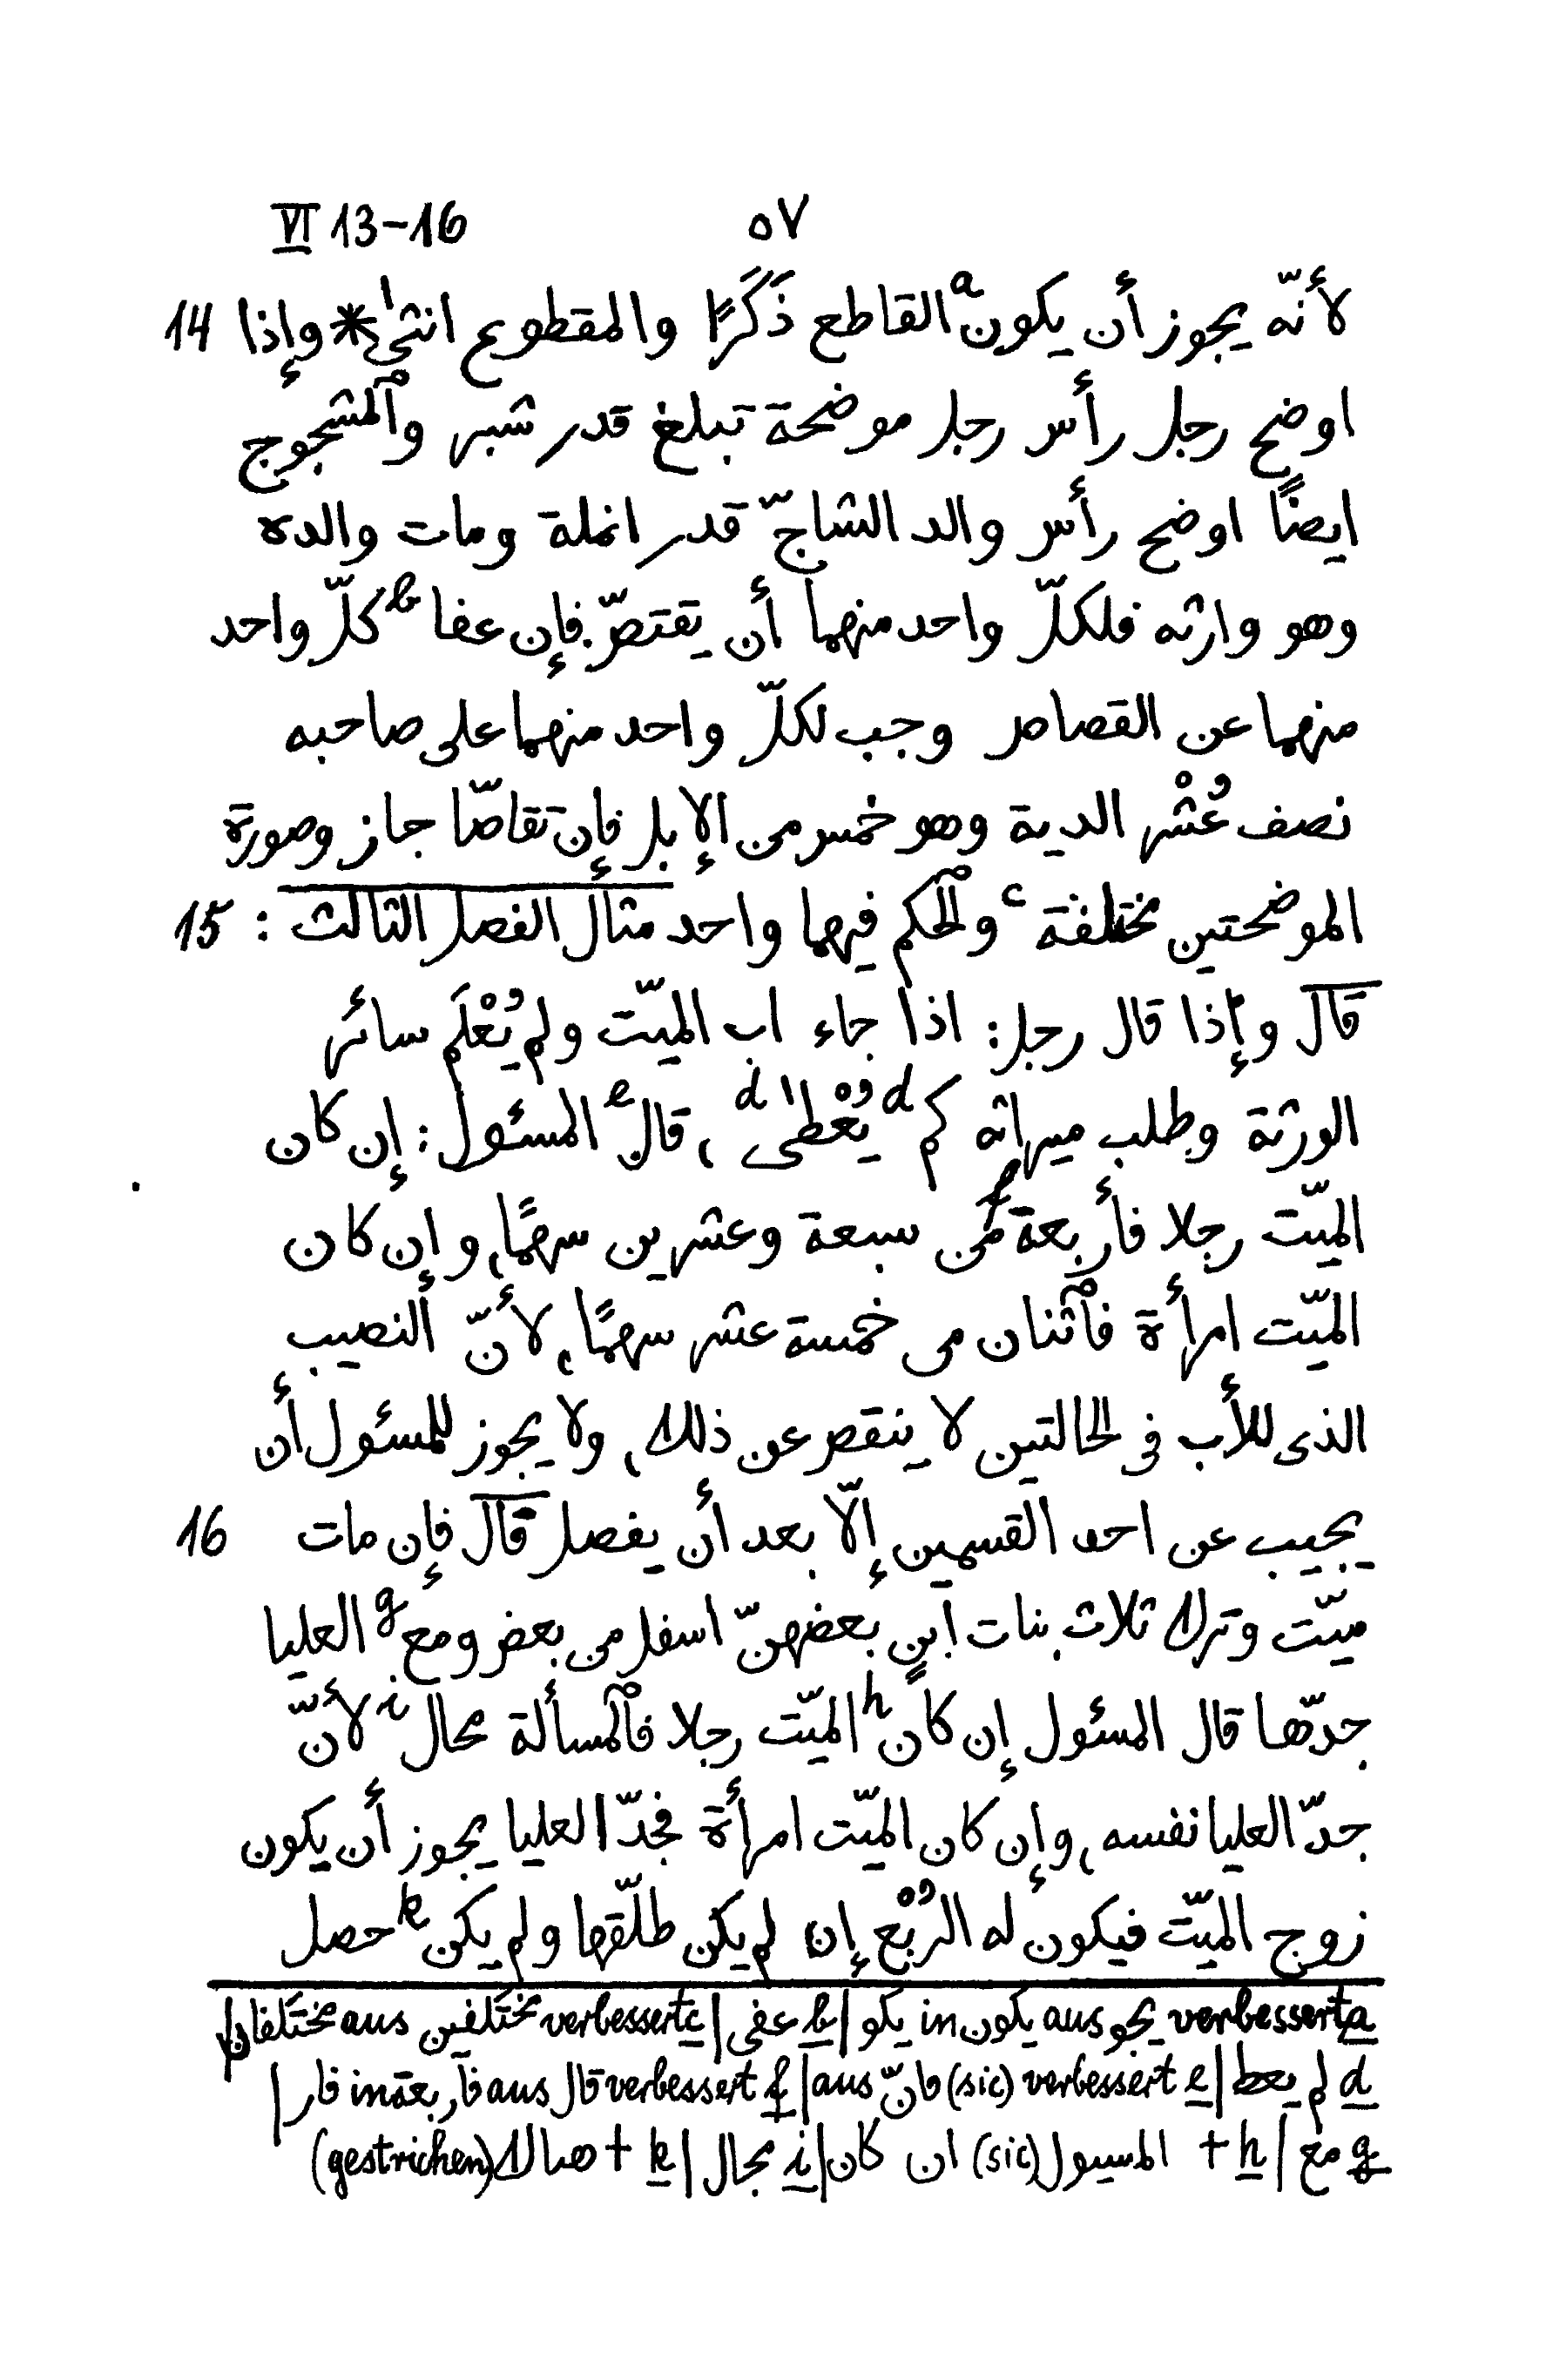 VI 13-16 ٥٧
لأنّه يجوز أن يكون a القاطع ذَكَرًا والمقطوع انثىٰ * وإذا 14
اوضح رجل رأس رجل موضحة تبلغ قدر شبر وٱلمشجوج
ايضًا اوضح رأس والد الشاجّ قدر انملة ومات والده
وهو وارثه فلكلّ واحد منهما أن يقتصّ. فإن عفا b كلّ واحد
منهما عن القصاص وجب لكلّ واحد منهما على صاحبه
نصف عُشْر الدية وهو خمس من الإبل فإن تقاصّا جاز وصورة
الموضحتين مختلفة c وٱلحكم فيهما واحد مثال الفصل الثالث : 15
قال وإذا قال رجل: اذا جاء اب الميّت ولم يُعْلَم سائر
الورثة وطلب ميراثه كم d يُعْطىٰ d، قال e المسئول: إن كان
الميّت رجلا فأربعة f من سبعة وعشرين سهمًا، وإن كان
الميّت امرأة فٱثنان من خمسة عشر سهمًا، لأنّ النصيب
الذى للأب فى الحالتين لا ينقص عن ذلك، ولا يجوز للمسئول أن
يجيب عن احد القسمين إلّا بعد أن يفصل قال فإن مات 16
ميّت وترك ثلاث بنات ابنٍ بعضهنّ اسفل من بعض ومع g العليا
جدّها قال المسئول إن كان h الميّت رجلا فٱلمسألة محال i لأنّ
جدّ العليا نفسه، وإن كان الميّت امرأة فجدّ العليا يجوز أن يكون
زوج الميّت فيكون له الرُبْع إن لم يكن طلّقها ولم يكن k حصل
a verbessert يجو aus يكون in يكو | b عفى | c verbessert مختلفين aus مختلفان |
d لم يعط | e verbessert (sic) فانّ aus | f verbessert قال aus فاربعة in فار |
g مع | h + المسيول (sic) ان كان | i مجال | k + هناك (gestrichen)